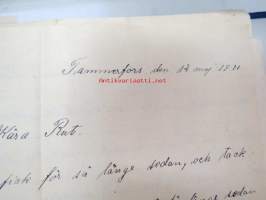 Tammerfors, den 12 maj 1911
Antikvariaatti.net
Kära Rut.
fick för så länge sedan, och tack
sedan